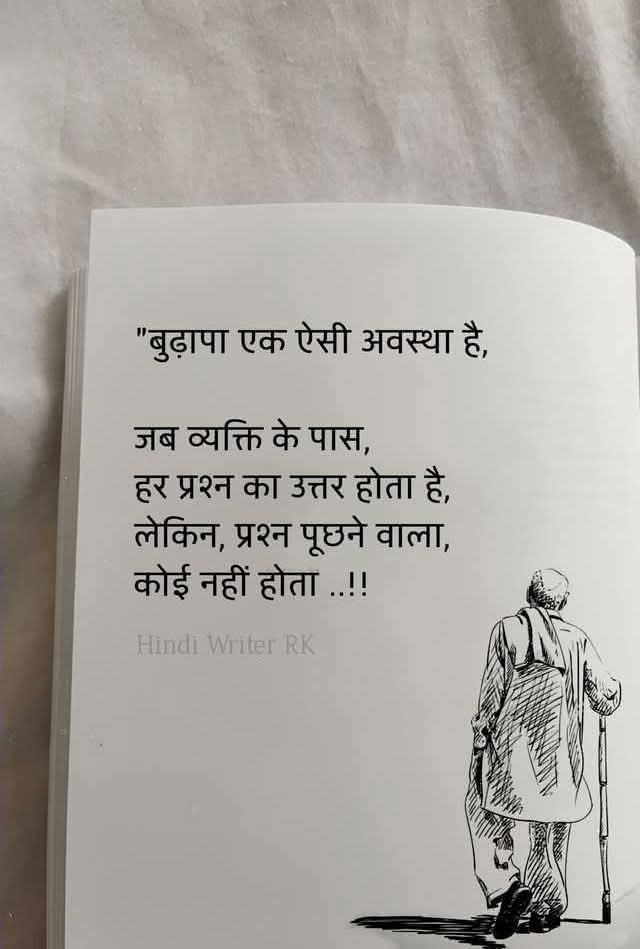 "बुढ़ापा एक ऐसी अवस्था है,
जब व्यक्ति के पास,
हर प्रश्न का उत्तर होता है,
लेकिन, प्रश्न पूछने वाला,
कोई नहीं होता ..!!
Hindi Writer RK